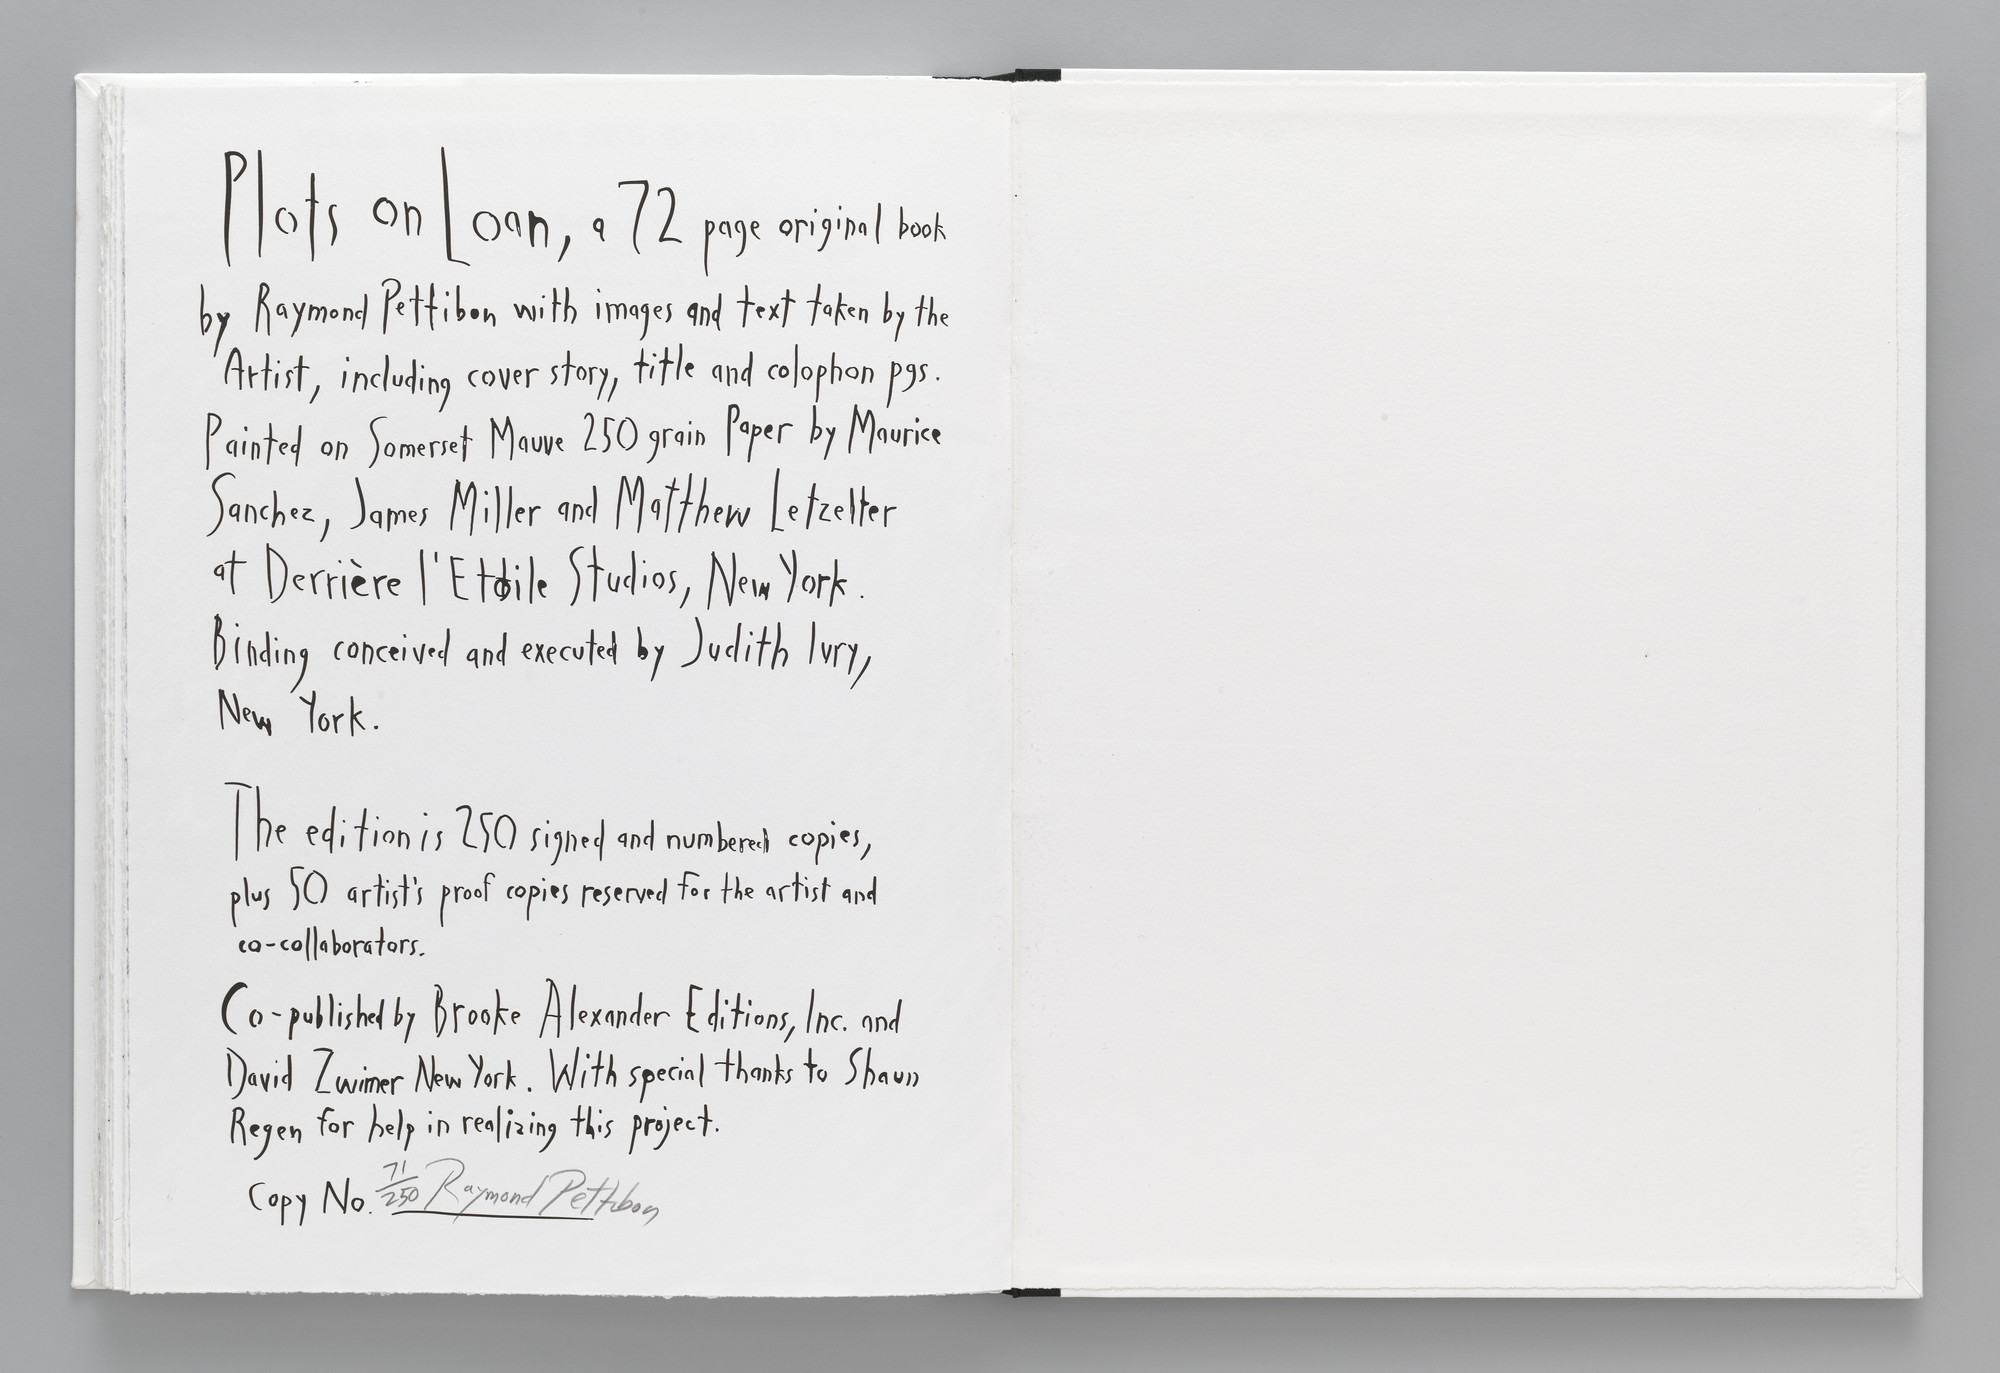 Plots on Loan, a 72 page original book
by Raymond Pettibon with images and text taken by the
Artist, including cover story, title and colophon pgs.
Painted on Somerset Mauve 250 grain Paper by Maurice
Sanchez, James Miller and Matthew Letzelter
at Derrière l'Etoile Studios, New York.
Binding conceived and executed by Judith Ivry,
New York.
The edition is 250 signed and numbered copies,
plus 50 artist's proof copies reserved for the artist and
co-collaborators.
Co-published by Brooke Alexander Editions, Inc. and
David Zwirner New York. With special thanks to Shaun
Regen for help in realizing this project.
Copy No. 71/250 Raymond Pettibon